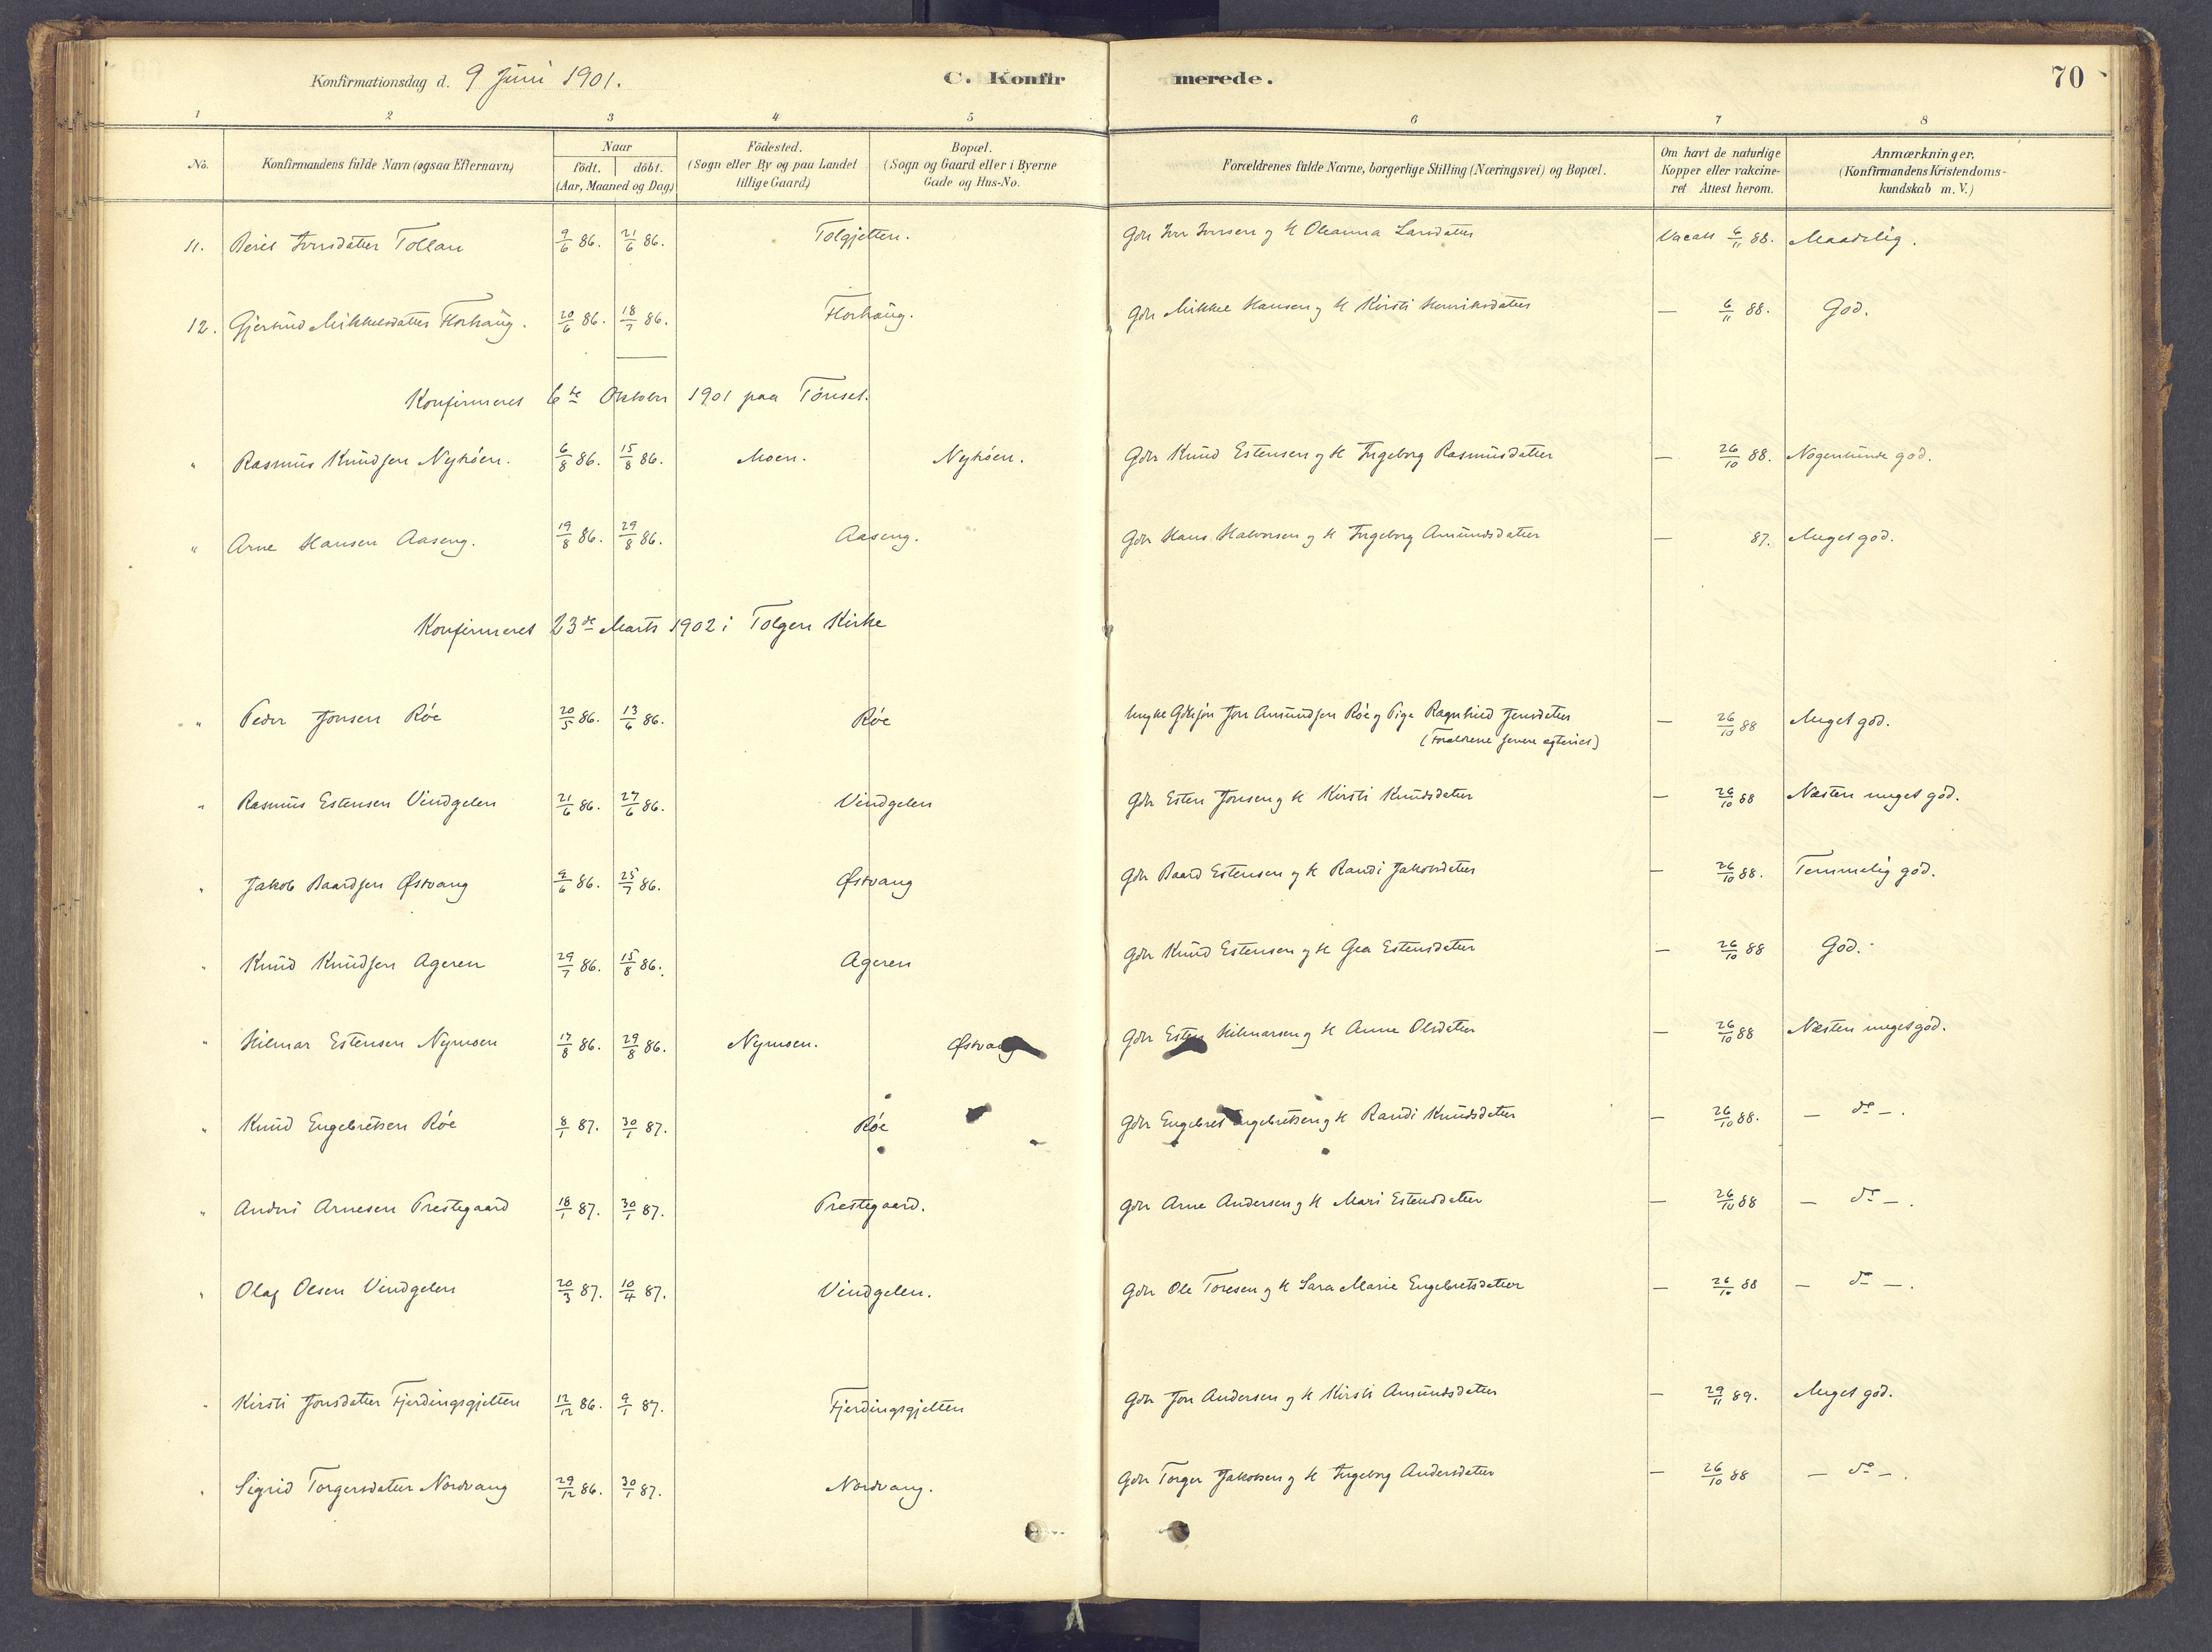 Konfirmationsdag d. 9 Juni 1901. C. Konfirmerede. 70
1 2 3 4 5 6 7 8
No. Konfirmandens fulde Navn (ogsaa Efternavn) Naar födt. döbt. (Aar, Maaned og Dag) Födested. (Sogn eller By og paa Landet tillige Gaard) Bopæl. (Sogn og Gaard eller i Byerne Gade og Hus-No. Forældrenes fulde Navne, borgerlige Stilling (Næringsvei) og Bopæl. Om havt de naturlige Kopper eller vakcineret Attest herom. Anmærkninger, (Konfirmandens Kristendomskundskab m. V.)
11. Beret Iversdatter Tollan 9/6 86. 21/6 86. Tolgjetten. Gdr Iver Iversen og H Oleanna Larsdatter Vacall 6/11 88. Maadelig.
12. Gjertrud Mikkelsdatter Florhaug. 20/6 86. 18/7 86. Florhaug. Gdr Mikkel Hansen og H Kirsti Henriksdatter — 6/11 88. God.
Konfirmeret 6te Oktober 1901 paa Tönset.
" Rasmus Knudsen Nyhöen. 6/8 86. 15/8 86. Moen. Nyhöen. Gdr Knud Estensen og H Ingeborg Rasmusdatter — 26/10 88. Nogenlunde god.
" Arne Hansen Aaseng. 19/8 86. 29/8 86. Aaseng. Gdr Hans Halvorsen og H Ingeborg Amundsdatter — 87. Meget god.
Konfirmeret 23de Marts 1902 i Tolgen Kirke
" Peder Jonsen Röe 20/5 86. 13/6 86. Röe Ungke Gdrsön Jon Amundsen Röe og Pige Ragnhild Jensdatter — 26/10 88 Meget god.
(Forældrene senere egteviet)
" Rasmus Estensen Vindgelen 21/6 86. 27/6 86. Vindgelen Gdr Esten Jonsen og H Kirsti Knudsdatter — 26/10 88 Næsten meget god.
" Jakob Baardsen Østvang 9/6 86. 25/7 86. Østvang Gdr Baard Estensen og H Randi Jakobsdatter — 26/10 88. Temmelig god.
" Knud Knudsen Ageren 29/7 86. 15/8 86. Ageren Gdr Knud Estensen og H Gea Estensdatter — 26/10 88 God.
" Hilmar Estensen Nymoen 17/8 86. 29/8 86. Nymoen. Østvang Gdr Esten Hilmarsen og H Anne Olsdatter — 26/10 88 Næsten meget god.
" Knud Engebretsen Röe 8/1 87. 30/1 87. Röe Gdr Engebret Engebretsen og H Randi Knudsdatter — 26/10 88. — do —.
" Anders Arnesen Prestegaard 18/1 87. 30/1 87. Prestegaard. Gdr Arne Andersen og H Mari Estensdatter — 26/10 88 — do —.
" Olaf Olsen Vindgelen 20/3 87. 10/4 87. Vindgelen. Gdr Ole Toresen og H Sara Marie Engebretsdatter — 26/10 88 — do —.
" Kirsti Jonsdatter Fjerdingsgjelten 12/12 86. 9/1 87. Fjerdingsgjelten Gdr Jon Andersen og H Kirsti Amundsdatter — 29/11 89. Meget god.
" Sigrid Torgersdatter Nordvang 29/12 86. 30/1 87. Nordvang. Gdr Torger Jakobsen og H Ingeborg Andersdatter — 26/10 88 — do —.